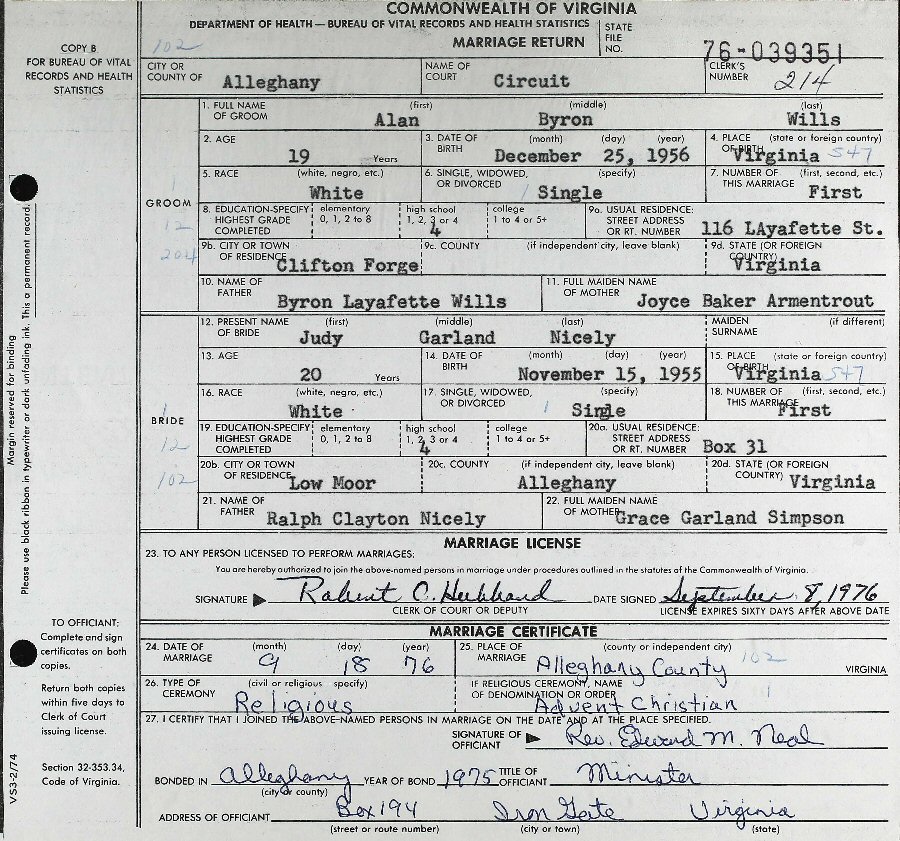 COMMONWEALTH OF VIRGINIA
DEPARTMENT OF HEALTH — BUREAU OF VITAL RECORDS AND HEALTH STATISTICS
MARRIAGE RETURN
STATE FILE NO. 76-039351
COPY B
FOR BUREAU OF VITAL
RECORDS AND HEALTH
STATISTICS
102
CITY OR COUNTY OF Alleghany
NAME OF COURT Circuit
CLERK'S NUMBER 214
GROOM
1
12
204
1. FULL NAME OF GROOM (first) Alan (middle) Byron (last) Wills
2. AGE 19 Years
3. DATE OF BIRTH (month) (day) (year) December 25, 1956
4. PLACE OF BIRTH (state or foreign country) Virginia 547
5. RACE (white, negro, etc.) White
6. SINGLE, WIDOWED, OR DIVORCED (specify) 1 Single
7. NUMBER OF THIS MARRIAGE (first, second, etc.) First
8. EDUCATION-SPECIFY HIGHEST GRADE COMPLETED elementary 0, 1, 2 to 8 high school 1, 2, 3 or 4 4 college 1 to 4 or 5+
9a. USUAL RESIDENCE: STREET ADDRESS OR RT. NUMBER 116 LAyafette St.
9b. CITY OR TOWN OF RESIDENCE Clifton Forge
9c. COUNTY (if independent city, leave blank)
9d. STATE (OR FOREIGN COUNTRY) Virginia
10. NAME OF FATHER Byron Layafette Wills
11. FULL MAIDEN NAME OF MOTHER Joyce Baker Armentrout
BRIDE
1
12
102
12. PRESENT NAME OF BRIDE (first) Judy (middle) Garland (last) Nicely
MAIDEN SURNAME (if different)
13. AGE 20 Years
14. DATE OF BIRTH (month) (day) (year) November 15, 1955
15. PLACE OF BIRTH (state or foreign country) Virginia 547
16. RACE (white, negro, etc.) White
17. SINGLE, WIDOWED, OR DIVORCED (specify) 1 Single
18. NUMBER OF THIS MARRIAGE (first, second, etc.) First
19. EDUCATION-SPECIFY HIGHEST GRADE COMPLETED elementary 0, 1, 2 to 8 high school 1, 2, 3 or 4 4 college 1 to 4 or 5+
20a. USUAL RESIDENCE: STREET ADDRESS OR RT. NUMBER Box 31
20b. CITY OR TOWN OF RESIDENCE Low Moor
20c. COUNTY (if independent city, leave blank) Alleghany
20d. STATE (OR FOREIGN COUNTRY) Virginia
21. NAME OF FATHER Ralph Clayton Nicely
22. FULL MAIDEN NAME OF MOTHER Grace Garland Simpson
MARRIAGE LICENSE
23. TO ANY PERSON LICENSED TO PERFORM MARRIAGES:
You are hereby authorized to join the above-named persons in marriage under procedures outlined in the statutes of the Commonwealth of Virginia.
SIGNATURE Robert C. Hubbard DATE SIGNED September 8, 1976
CLERK OF COURT OR DEPUTY LICENSE EXPIRES SIXTY DAYS AFTER ABOVE DATE
MARRIAGE CERTIFICATE
24. DATE OF MARRIAGE (month) 9 (day) 18 (year) 76
25. PLACE OF MARRIAGE (county or independent city) Alleghany County 102 VIRGINIA
26. TYPE OF CEREMONY (civil or religious specify) Religious
IF RELIGIOUS CEREMONY, NAME OF DENOMINATION OR ORDER Advent Christian
27. I CERTIFY THAT I JOINED THE ABOVE-NAMED PERSONS IN MARRIAGE ON THE DATE AND AT THE PLACE SPECIFIED.
SIGNATURE OF OFFICIANT Rev. Edward M. Neal
BONDED IN Alleghany YEAR OF BOND 1975 TITLE OF OFFICIANT Minister
(city or county)
ADDRESS OF OFFICIANT Box 194 Iron Gate Virginia
(street or route number) (city or town) (state)
TO OFFICIANT:
Complete and sign
certificates on both
copies.
Return both copies
within five days to
Clerk of Court
issuing license.
Section 32-353.34,
Code of Virginia.
Margin reserved for binding
Please use black ribbon in typewriter or dark unfading ink. This is a permanent record.
VS3-2/74